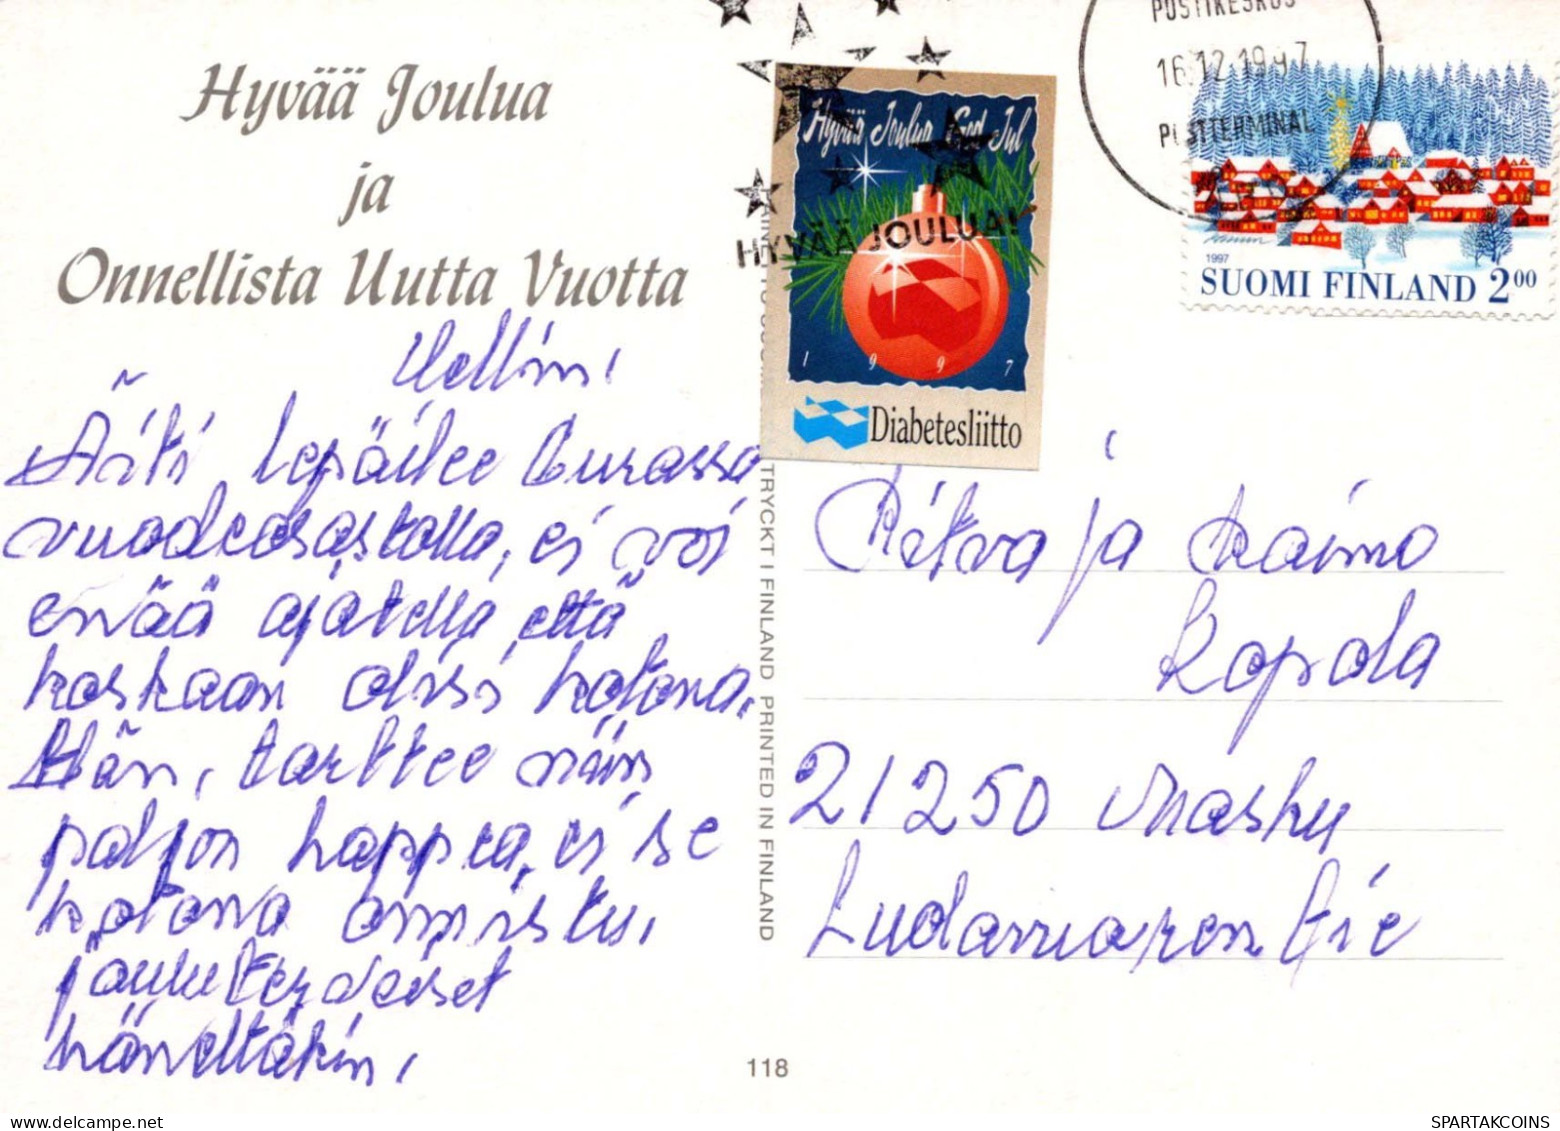 Hyvää Joulua
ja
Onnellista Uutta Vuotta
Äiti lepäilee Turussa
vuodeosastolla, ei voi
enää ajatella, että
koskaan olisi kotona.
Hän, tarttee niin
paljon happea, ei se
kotona onnistu,
jouluterveiset
häneltäkin,
Hyvää Joulua God Jul
HYVÄÄ JOULUA!
1997
Diabetesliitto
POSTIKESKUS
16.12.1997
POSTTERMINAL
1997
SUOMI FINLAND 2.00
TRYCKT I FINLAND PRINTED IN FINLAND
Ritva ja Raimo
Kopola
21250 Masku
118
SPARTAKCOINS